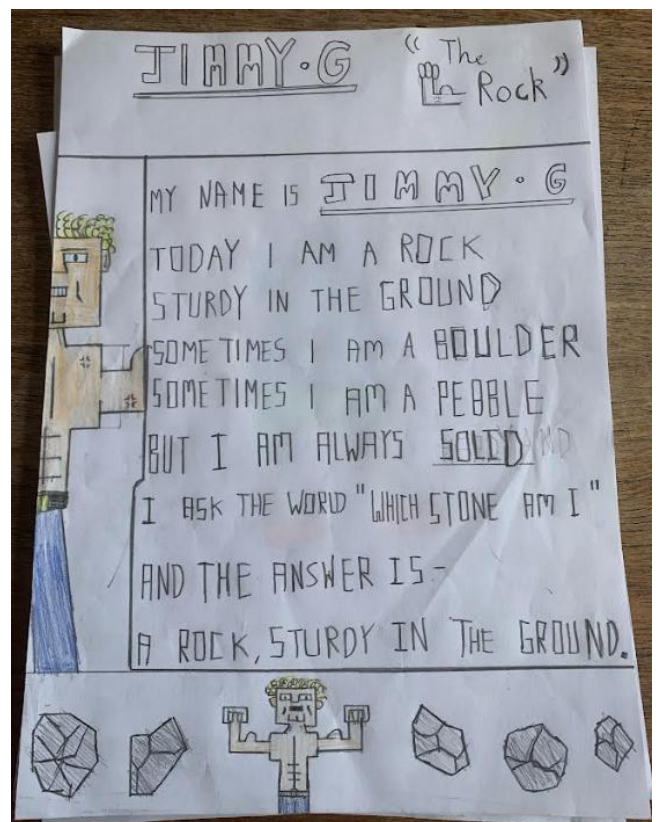 JIMMY·G
"The Rock"
MY NAME IS JIMMY·G
TODAY I AM A ROCK
STURDY IN THE GROUND
SOMETIMES I AM A BOULDER
SOMETIMES I AM A PEBBLE
BUT I AM ALWAYS SOLID
I ASK THE WORLD "WHICH STONE AM I"
AND THE ANSWER IS-
A ROCK, STURDY IN THE GROUND.